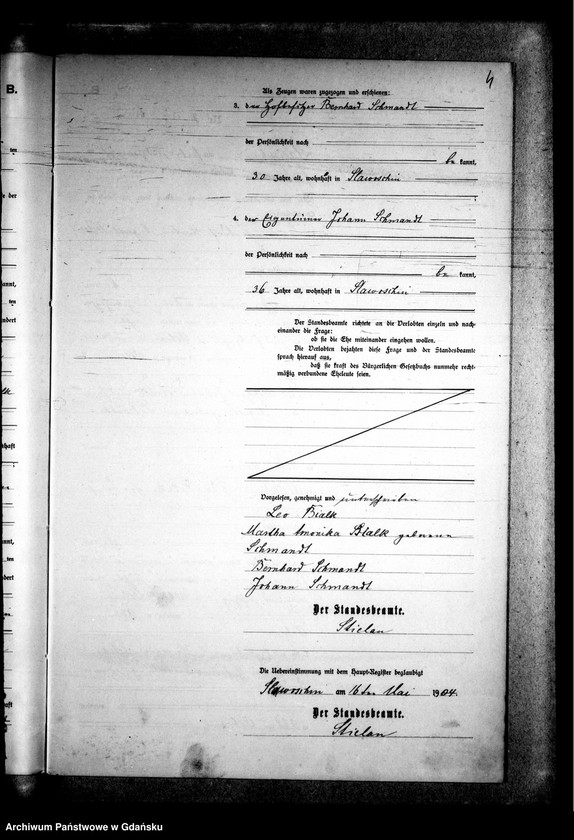 4
B.
Als Zeugen waren zugezogen und erschienen:
3. der Hofbesitzer Bernhard Schmandt
der Persönlichkeit nach
be kannt,
30 Jahre alt, wohnhaft in Slawoschin
4. der Eigentümer Johann Schmandt
der Persönlichkeit nach
be kannt,
36 Jahre alt, wohnhaft in Slawoschin
Der Standesbeamte richtete an die Verlobten einzeln und nach-
einander die Frage:
ob sie die Ehe miteinander eingehen wollen.
Die Verlobten bejahten diese Frage und der Standesbeamte
sprach hierauf aus,
daß sie kraft des Bürgerlichen Gesetzbuchs nunmehr recht-
mäßig verbundene Eheleute seien.
Vorgelesen, genehmigt und unterschrieben
Leo Bialk
Martha Monika Bialk geborene
Schmandt
Bernhard Schmandt
Johann Schmandt
Der Standesbeamte.
Die Uebereinstimmung mit dem Haupt-Register beglaubigt
Slawoschin am 16ten Mai 1904.
Der Standesbeamte.
Archiwum Państwowe w Gdańsku